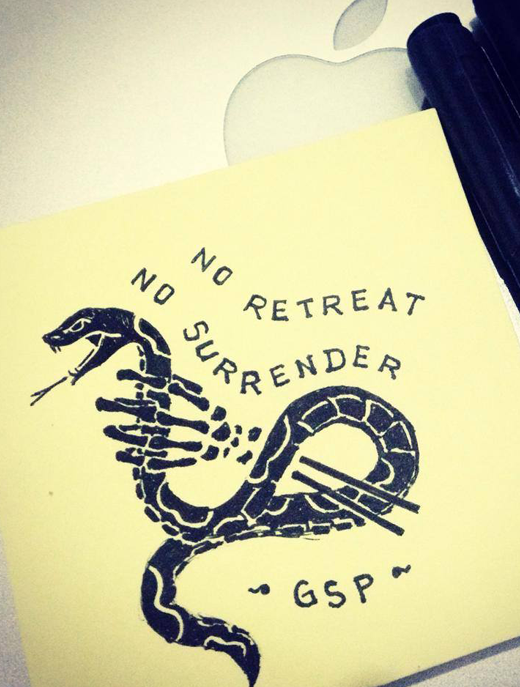 NO RETREAT
NO SURRENDER
~ GSP ~